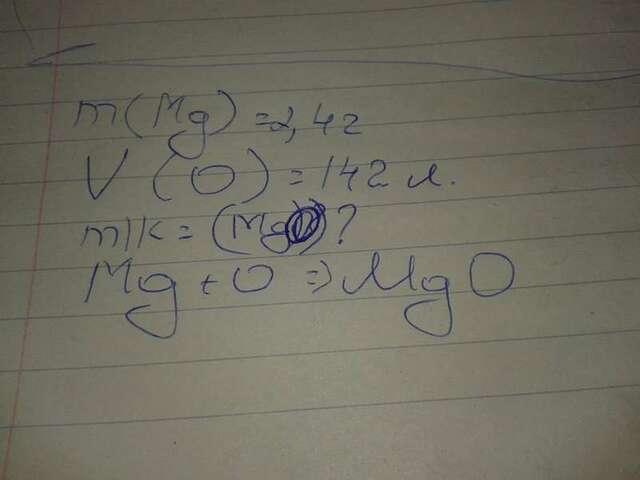 m(Mg) = 2,4г
V(O) = 142 л.
m|k = (MgO)?
Mg + O => MgO